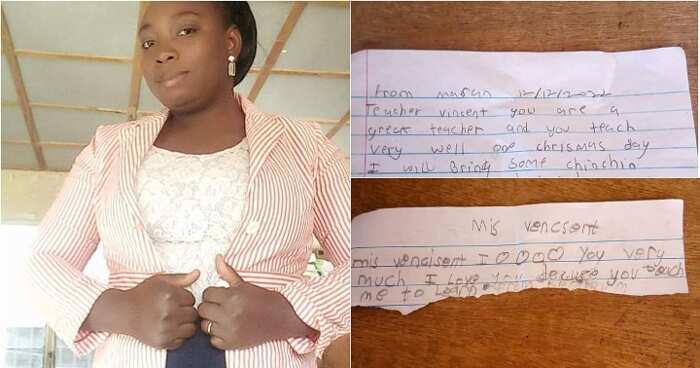 From maran 12/12/2022
Teacher vincent you are a
great teacher and you teach
very well one chrismas day
I will Bring some chinchin
Mis vencsent
mis vencisent I you very
much I Love you because you teach
me to Learn